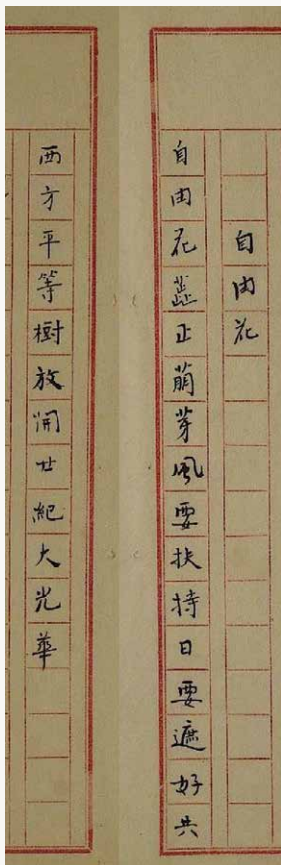 自由花
自由花蕋正萌芽風要扶持日要遮好共
西方平等樹放開廿紀大光華